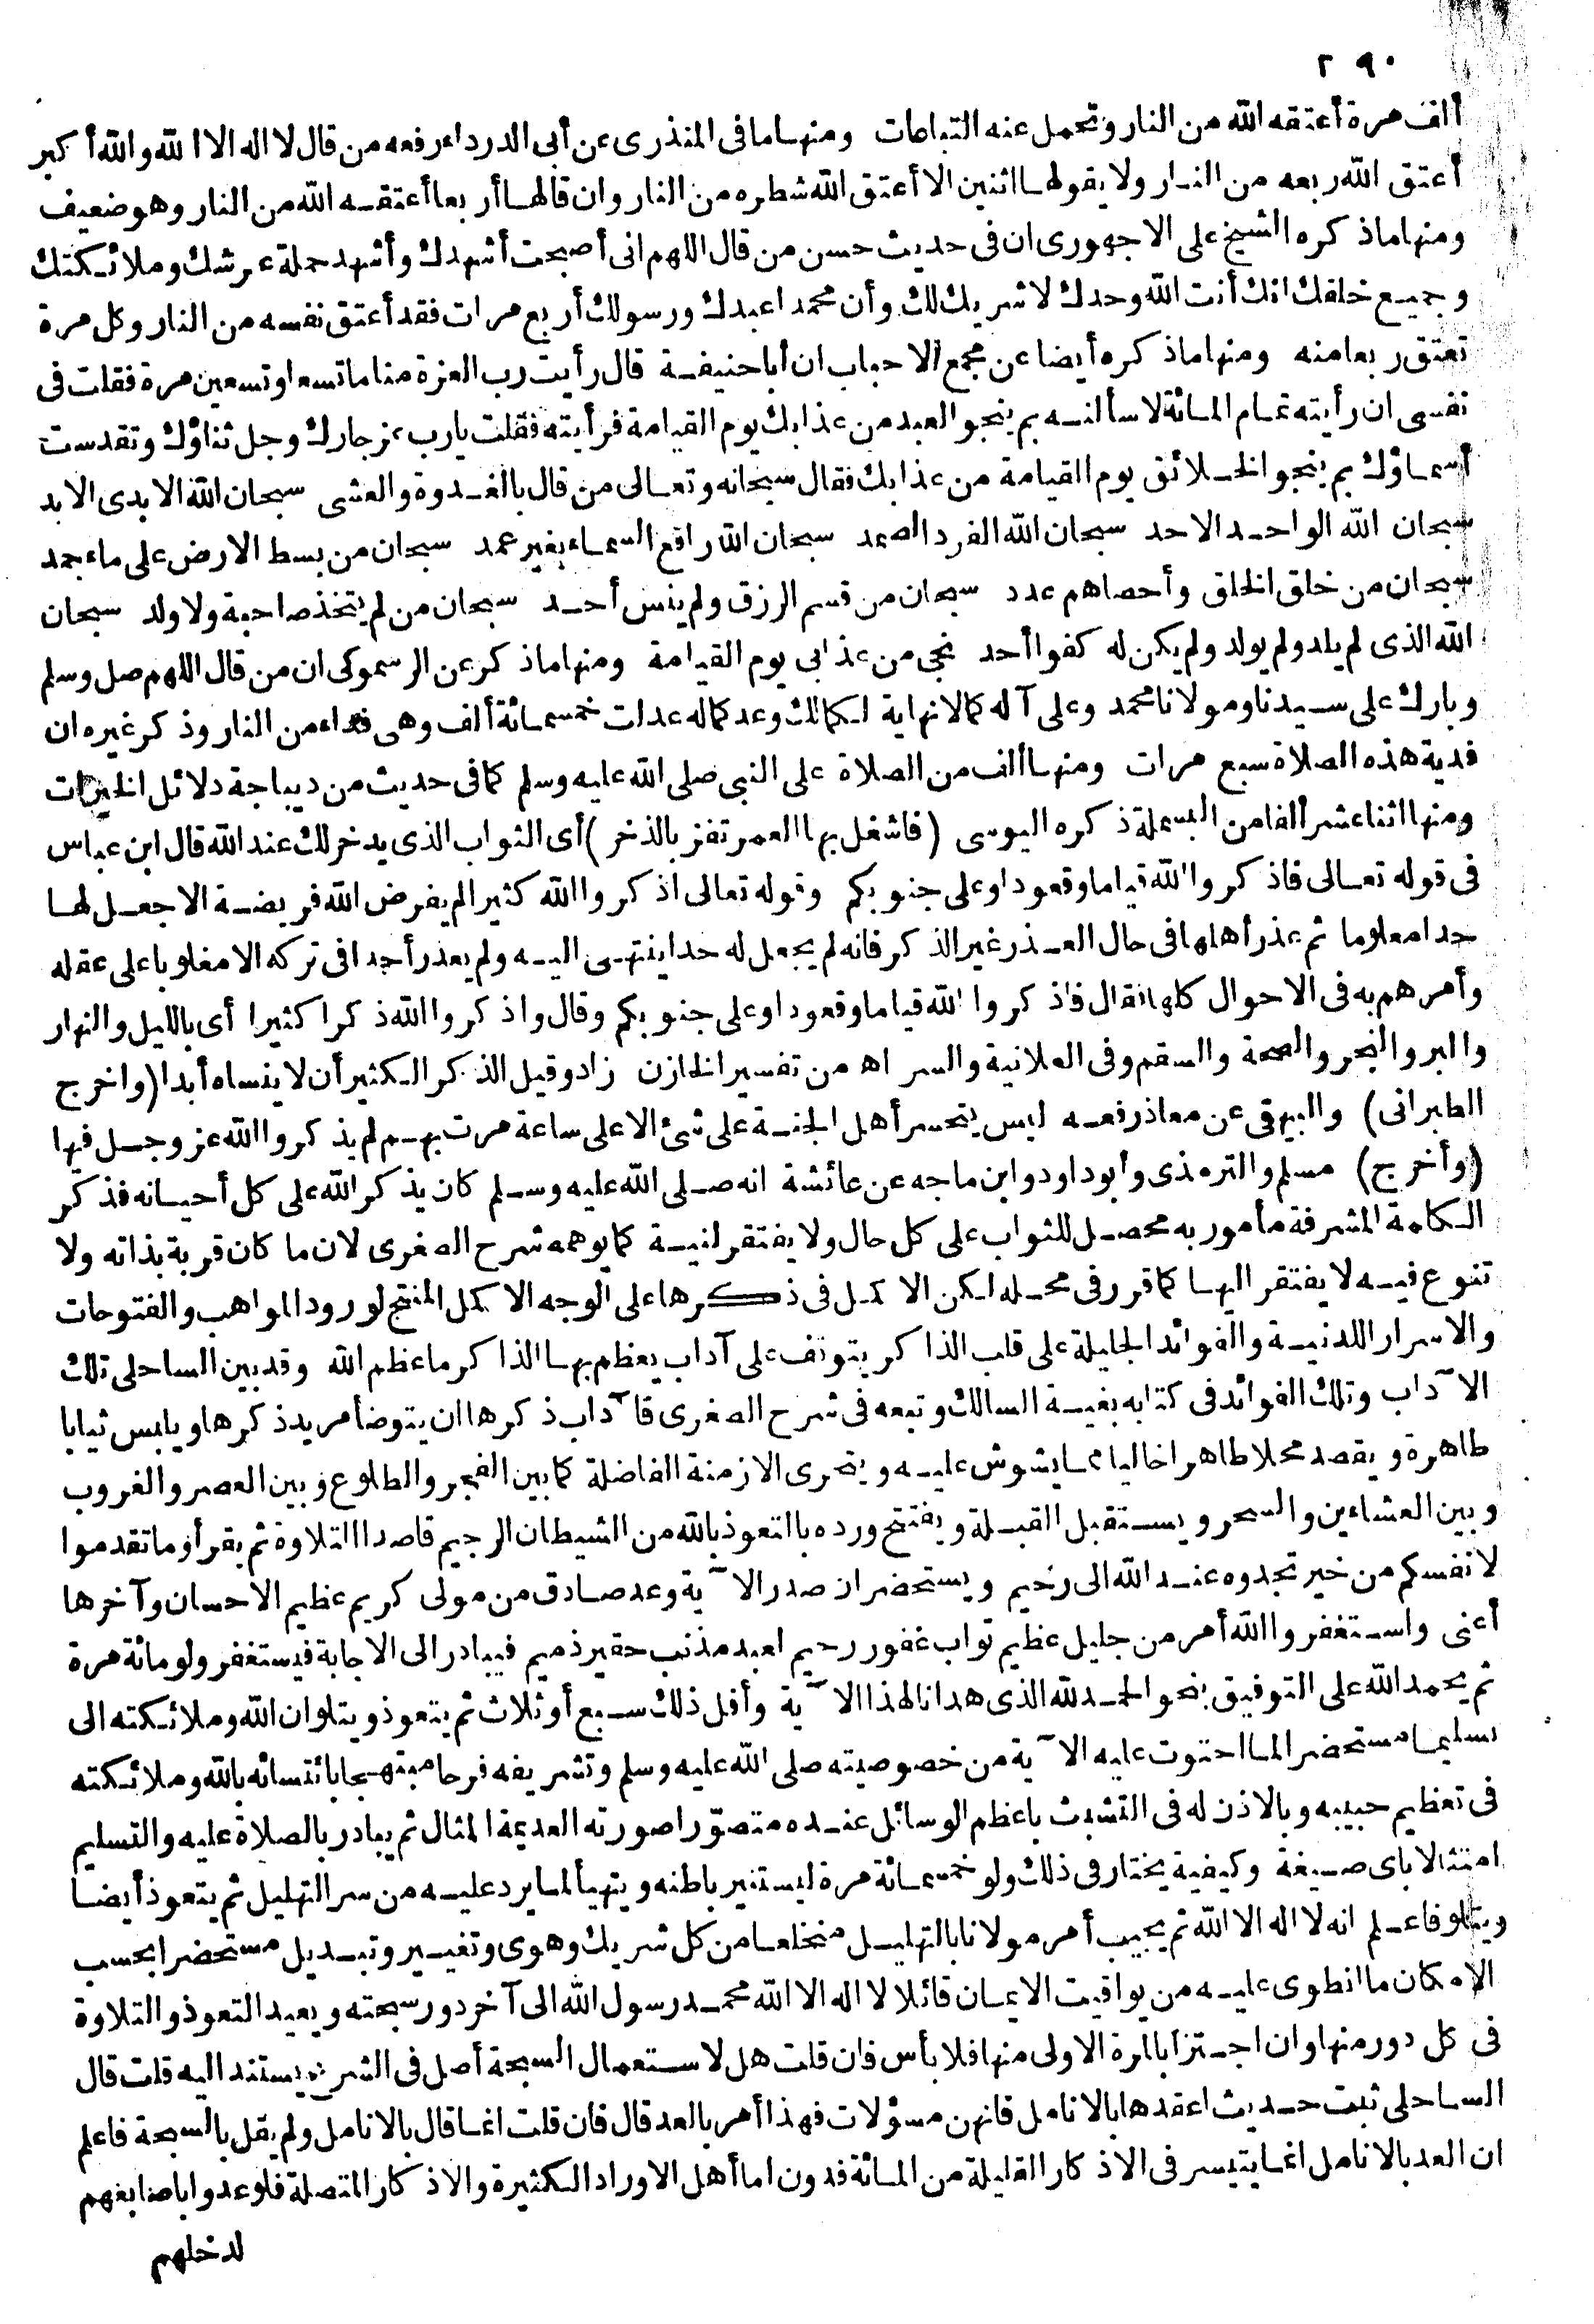 ٢٩٠
ألف مرة أعتقه الله من النار وتحمل عنه التباعات ومنها ما فى المنذرى عن أبى الدرداء رفعه من قال لا اله الا الله والله أكبر
أعتق الله ربعه من النار ولا يقولها اثنين الا أعتق الله شطره من النار وان قالها أربعا أعتقه الله من النار وهو ضعيف
ومنها ماذكره الشيخ على الاجهورى ان فى حديث حسن من قال اللهم انى أصبحت أشهدك وأشهد حملة عرشك وملائكتك
وجميع خلقك انك أنت الله وحدك لا شريك لك وأن محمدا عبدك ورسولك أربع مرات فقد أعتق نفسه من النار وكل مرة
تعتق ربعا منه ومنها ماذكره أيضا عن مجمع الاحباب ان أبا حنيفة قال رأيت رب العزة مناما تسعا وتسعين مرة فقلت فى
نفسى ان رأيته تمام المائة لاسألنه بم ينجو العبد من عذابك يوم القيامة فرأيته فقلت يارب عز جارك وجل ثناؤك وتقدست
أسماؤك بم ينجو الخلائق يوم القيامة من عذابك فقال سبحانه وتعالى من قال بالغدوة والعشى سبحان الله الابدى الابد
سبحان الله الواحد الاحد سبحان الله الفرد الصمد سبحان الله رافع السماء بغير عمد سبحان من بسط الارض على ماء جمد
سبحان من خلق الخلق وأحصاهم عدد سبحان من قسم الرزق ولم ينس أحد سبحان من لم يتخذ صاحبة ولا ولد سبحان
الله الذى لم يلد ولم يولد ولم يكن له كفوا أحد نجى من عذابى يوم القيامة ومنها ماذكر عن الرسموكى ان من قال اللهم صل وسلم
وبارك على سيدنا ومولانا محمد وعلى آله كما لانهاية لكمالك وعد كماله عدلت خمسمائة ألف وهى فداء من النار وذكر غيره ان
فدية هذه الصلاة سبع مرات ومنها ألف من الصلاة على النبى صلى الله عليه وسلم كما فى حديث من ديباجة دلائل الخيرات
ومنها اثنا عشر ألفا من البسملة ذكره اليوسى (فاشغل بها العمر تفز بالذخر) أى الثواب الذى يدخر لك عند الله قال ابن عباس
فى قوله تعالى فاذكروا الله قياما وقعودا وعلى جنوبكم وقوله تعالى اذكروا الله كثيرا لم يفرض الله فريضة الا جعل لها
حدا معلوما ثم عذر أهلها فى حال العذر غير الذكر فانه لم يجعل له حدا ينتهى اليه ولم يعذر أحدا فى تركه الا مغلوبا على عقله
وأمرهم به فى الاحوال كلها فقال فاذكروا الله قياما وقعودا وعلى جنوبكم وقال واذكروا الله ذكرا كثيرا أى بالليل والنهار
والبر والبحر والصحة والسقم وفى العلانية والسر اه من تفسير الخازن زاد وقيل الذكر الكثير أن لا ينساه أبدا (واخرج
الطبرانى) والبيهقى عن معاذ رفعه ليس يتحسر أهل الجنة على شئ الا على ساعة مرت بهم لم يذكروا الله عز وجل فيها
(وأخرج) مسلم والترمذى وأبوداود وابن ماجه عن عائشة انه صلى الله عليه وسلم كان يذكر الله على كل أحيانه فذكر
الكلمة المشرفة مأمور به محصل للثواب على كل حال ولا يفتقر لنية كما يوهمه شرح الصغرى لان ما كان قربة بذاته ولا
تنوع فيه لا يفتقر اليها كما قرر فى محله لكن الاكمل فى ذكرها على الوجه الاكمل المنتج لورود المواهب والفتوحات
والاسرار اللدنية والفوائد الجليلة على قلب الذاكر يتوقف على آداب يعظم بها الذاكر ما عظم الله وقد بين الساحلى تلك
الآداب وتلك الفوائد فى كتابه بغية السالك وتبعه فى شرح الصغرى فآداب ذكرها ان يتوضأ مريد ذكرها ويلبس ثيابا
طاهرة ويقصد محلا طاهرا خاليا مما يشوش عليه ويتحرى الازمنة الفاضلة كما بين الفجر والطلوع وبين العصر والغروب
وبين العشاءين والسحر ويستقبل القبلة ويفتتح ورده بالتعوذ بالله من الشيطان الرجيم قاصدا التلاوة ثم يقرأ وما تقدموا
لانفسكم من خير تجدوه عند الله الى رحيم ويستحضر ان صدر الآية وعد صادق من مولى كريم عظيم الاحسان وآخرها
أعنى واستغفروا الله أمر من جليل عظيم تواب غفور رحيم لعبد مذنب حقير ذميم فيبادر الى الاجابة فيستغفر ولو مائة مرة
ثم يحمد الله على التوفيق بنحو الحمد لله الذى هدانا لهذا الآية وأقل ذلك سبع أو ثلاث ثم يتعوذ ويتلو ان الله وملائكته الى
تسليما مستحضرا لما احتوت عليه الآية من خصوصيته صلى الله عليه وسلم وتشريفه فرحا مبتهجا بائتسائه بالله وملائكته
فى تعظيم حبيبه وبالاذن له فى التشبث باعظم الوسائل عنده متصورا صورته العديمة المثال ثم يبادر بالصلاة عليه والتسليم
امتثالا باى صيغة وكيفية يختار فى ذلك ولو خمسمائة مرة ليستنير باطنه ويتهيأ لما يرد عليه من سر التهليل ثم يتعوذ أيضا
ويتلو فاعلم انه لا اله الا الله ثم يجيب أمر مولانا بالتهليل منخلعا من كل شريك وهوى وتغيير وتبديل مستحضرا بحسب
الامكان ما انطوى عليه من يواقيت الايمان قائلا لا اله الا الله محمد رسول الله الى آخر دور سبحته ويعيد التعوذ والتلاوة
فى كل دور منها وان اجتزأ بالمرة الاولى منها فلا بأس فان قلت هل لاستعمال السبحة أصل فى الشرع يستند اليه قلت قال
الساحلى ثبت حديث اعقدها بالانامل فانهن مسؤلات فهذا أمر بالعد قال فان قلت انما قال بالانامل ولم يقل بالسبحة فاعلم
ان العد بالانامل انما يتيسر فى الاذكار القليلة من المائة فدون اما أهل الاوراد الكثيرة والاذكار المتصلة فلو عدوا باصابعهم
لدخلهم